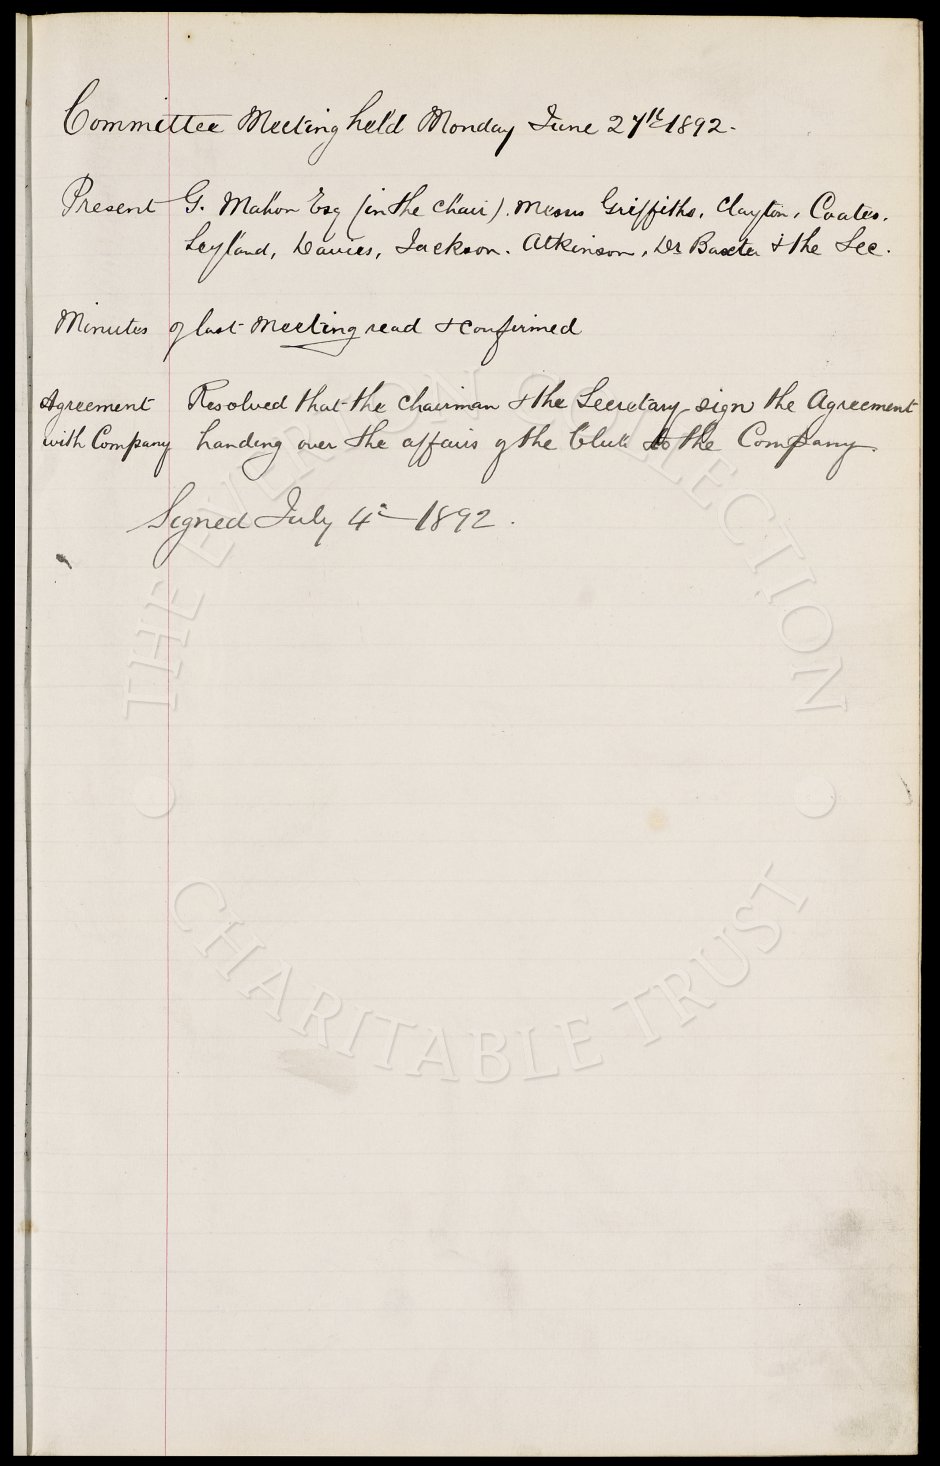 Committee Meeting held Monday June 27th 1892.
Present G. Mahon Esq (in the chair), Messrs Griffiths, Clayton, Coates,
Leyland, Davies, Jackson, Atkinson, Dr Baxter & the Sec.
Minutes of last meeting read & confirmed
Agreement Resolved that the Chairman & the Secretary sign the Agreement
with Company handing over the affairs of the Club to the Company
Signed July 4th 1892.
THE EVERTON COLLECTION
CHARITABLE TRUST